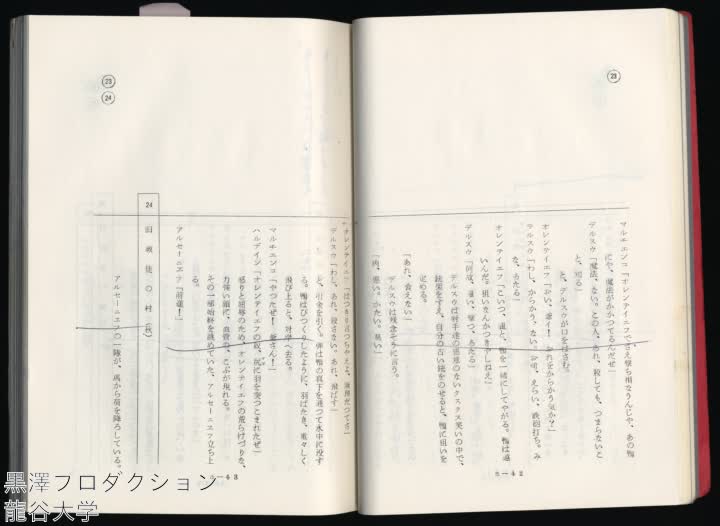 ㉓
マルチエンコ「オレンテイエフでさえ撃ち損なうんじや、あの鴨
にや、魔法がかかつてるんだぜ」
デルスウ「魔法、ない。この人、あれ、殺しても、つまらないこ
と、知る」
と、デルスウが口をはさむ。
オレンテイエフ「おい、爺イ! おれをからかう気か?」
デルスウ「わし、からかう、ない。お前、えらい、鉄砲打ち。み
な、あたる」
オレンテイエフ「こいつ、鹿と、鴨を一緒にしてやがる。鴨は遠
いんだ。狙いなんかつきやしねえ」
デルスウ「何故、遠い、撃つ、あたる」
デルスウは射手達の遠慮のないクスクス笑いの中で、
銃架をすえ、自分の古い銃をのせると、鴨に狙いを
定める。
「あれ、食えない」
デルスウは残念そうに言う。
「肉、悪い。かたい。臭い」
n—42
㉓
㉔
オレンテイエフ「はつきり言つちやえよ、
デルスウ「わし、あれ、殺さない。あれ、飛ばす」
と、引金を引く。弾は鴨の真下を通つて水中に没す
る。鴨はびつくりしたように、羽ばたき、重々しく
飛び上ると、対岸へ去る。
マルチエンコ「やつたぜ! 爺さん!」
ハルデイン「オレンテイエフの奴、尻に羽を突つこまれたぜ」
怒りと屈辱のため、オレンテイエフの荒らけづりな、
力強い顔に、血管の、こぶが現れる。
その一部始終を眺めていた、アルセーニエフ立ち上
る。
アルセーニエフ「前進!」
24 旧教徒の村(秋)
アルセーニエフの一隊が、馬から荷を降ろしている。
n—43
黒澤プロダクション
龍谷大学